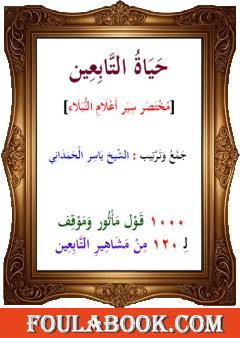 حَيَاةُ التَّابِعِين
[مُخْتَصَر سِيَر أَعْلَامِ النُّبَلَاء]
جَمْعُ وَتَرْتِيب : الشَّيخ يَاسِر الْحَمَدَانِي
١٠٠٠ قَوْل مَأْثُور وَمَوْقِف
لِـ ١٢٠ مِنْ مَشَاهِيرِ التَّابِعِين
FOULABOOK.COM